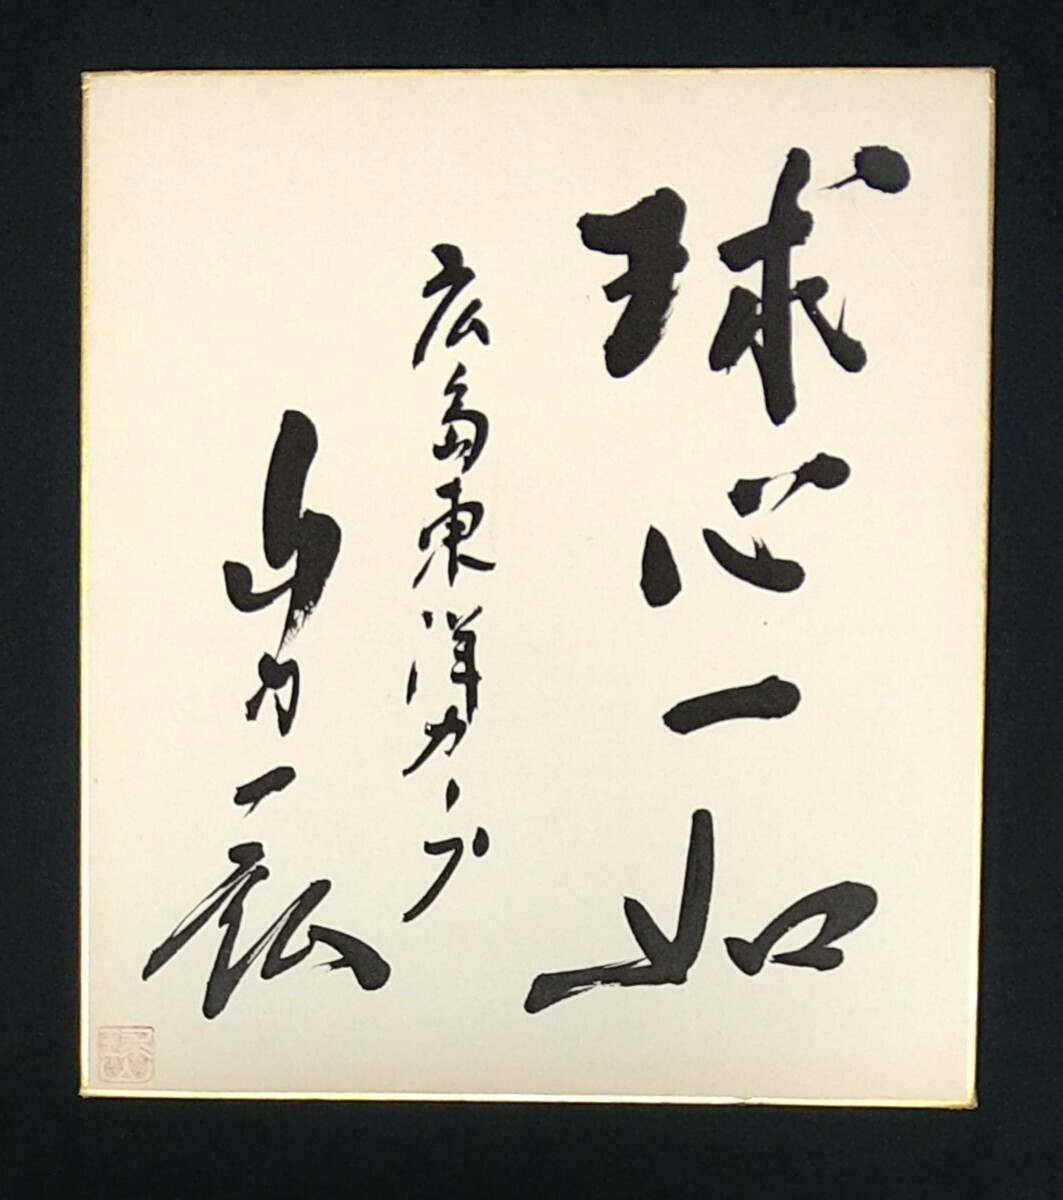 球心一如
広島東洋カープ
山内一弘